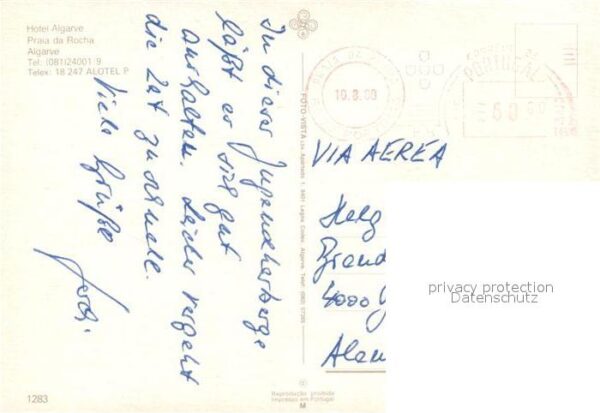 Hotel Algarve
Praia da Rocha
Algarve
Tel: (081)24001/9
Telex: 18 247 ALOTEL P
In dieser Jugendherberge
läßt es sich gut
aushalten. Leider vergeht
die Zeit zu schnell.
Viele Grüße
FOTO-VISTA Lda. Apartado 1, 8401 Lagoa Codex, Algarve, Telef.
19.8.90
PORTUGAL
VIA AEREA
Helg
Brand
4000
Alem
privacy protection
Datenschutz
1283
Reprodução proibida
Impresso em Portugal
M